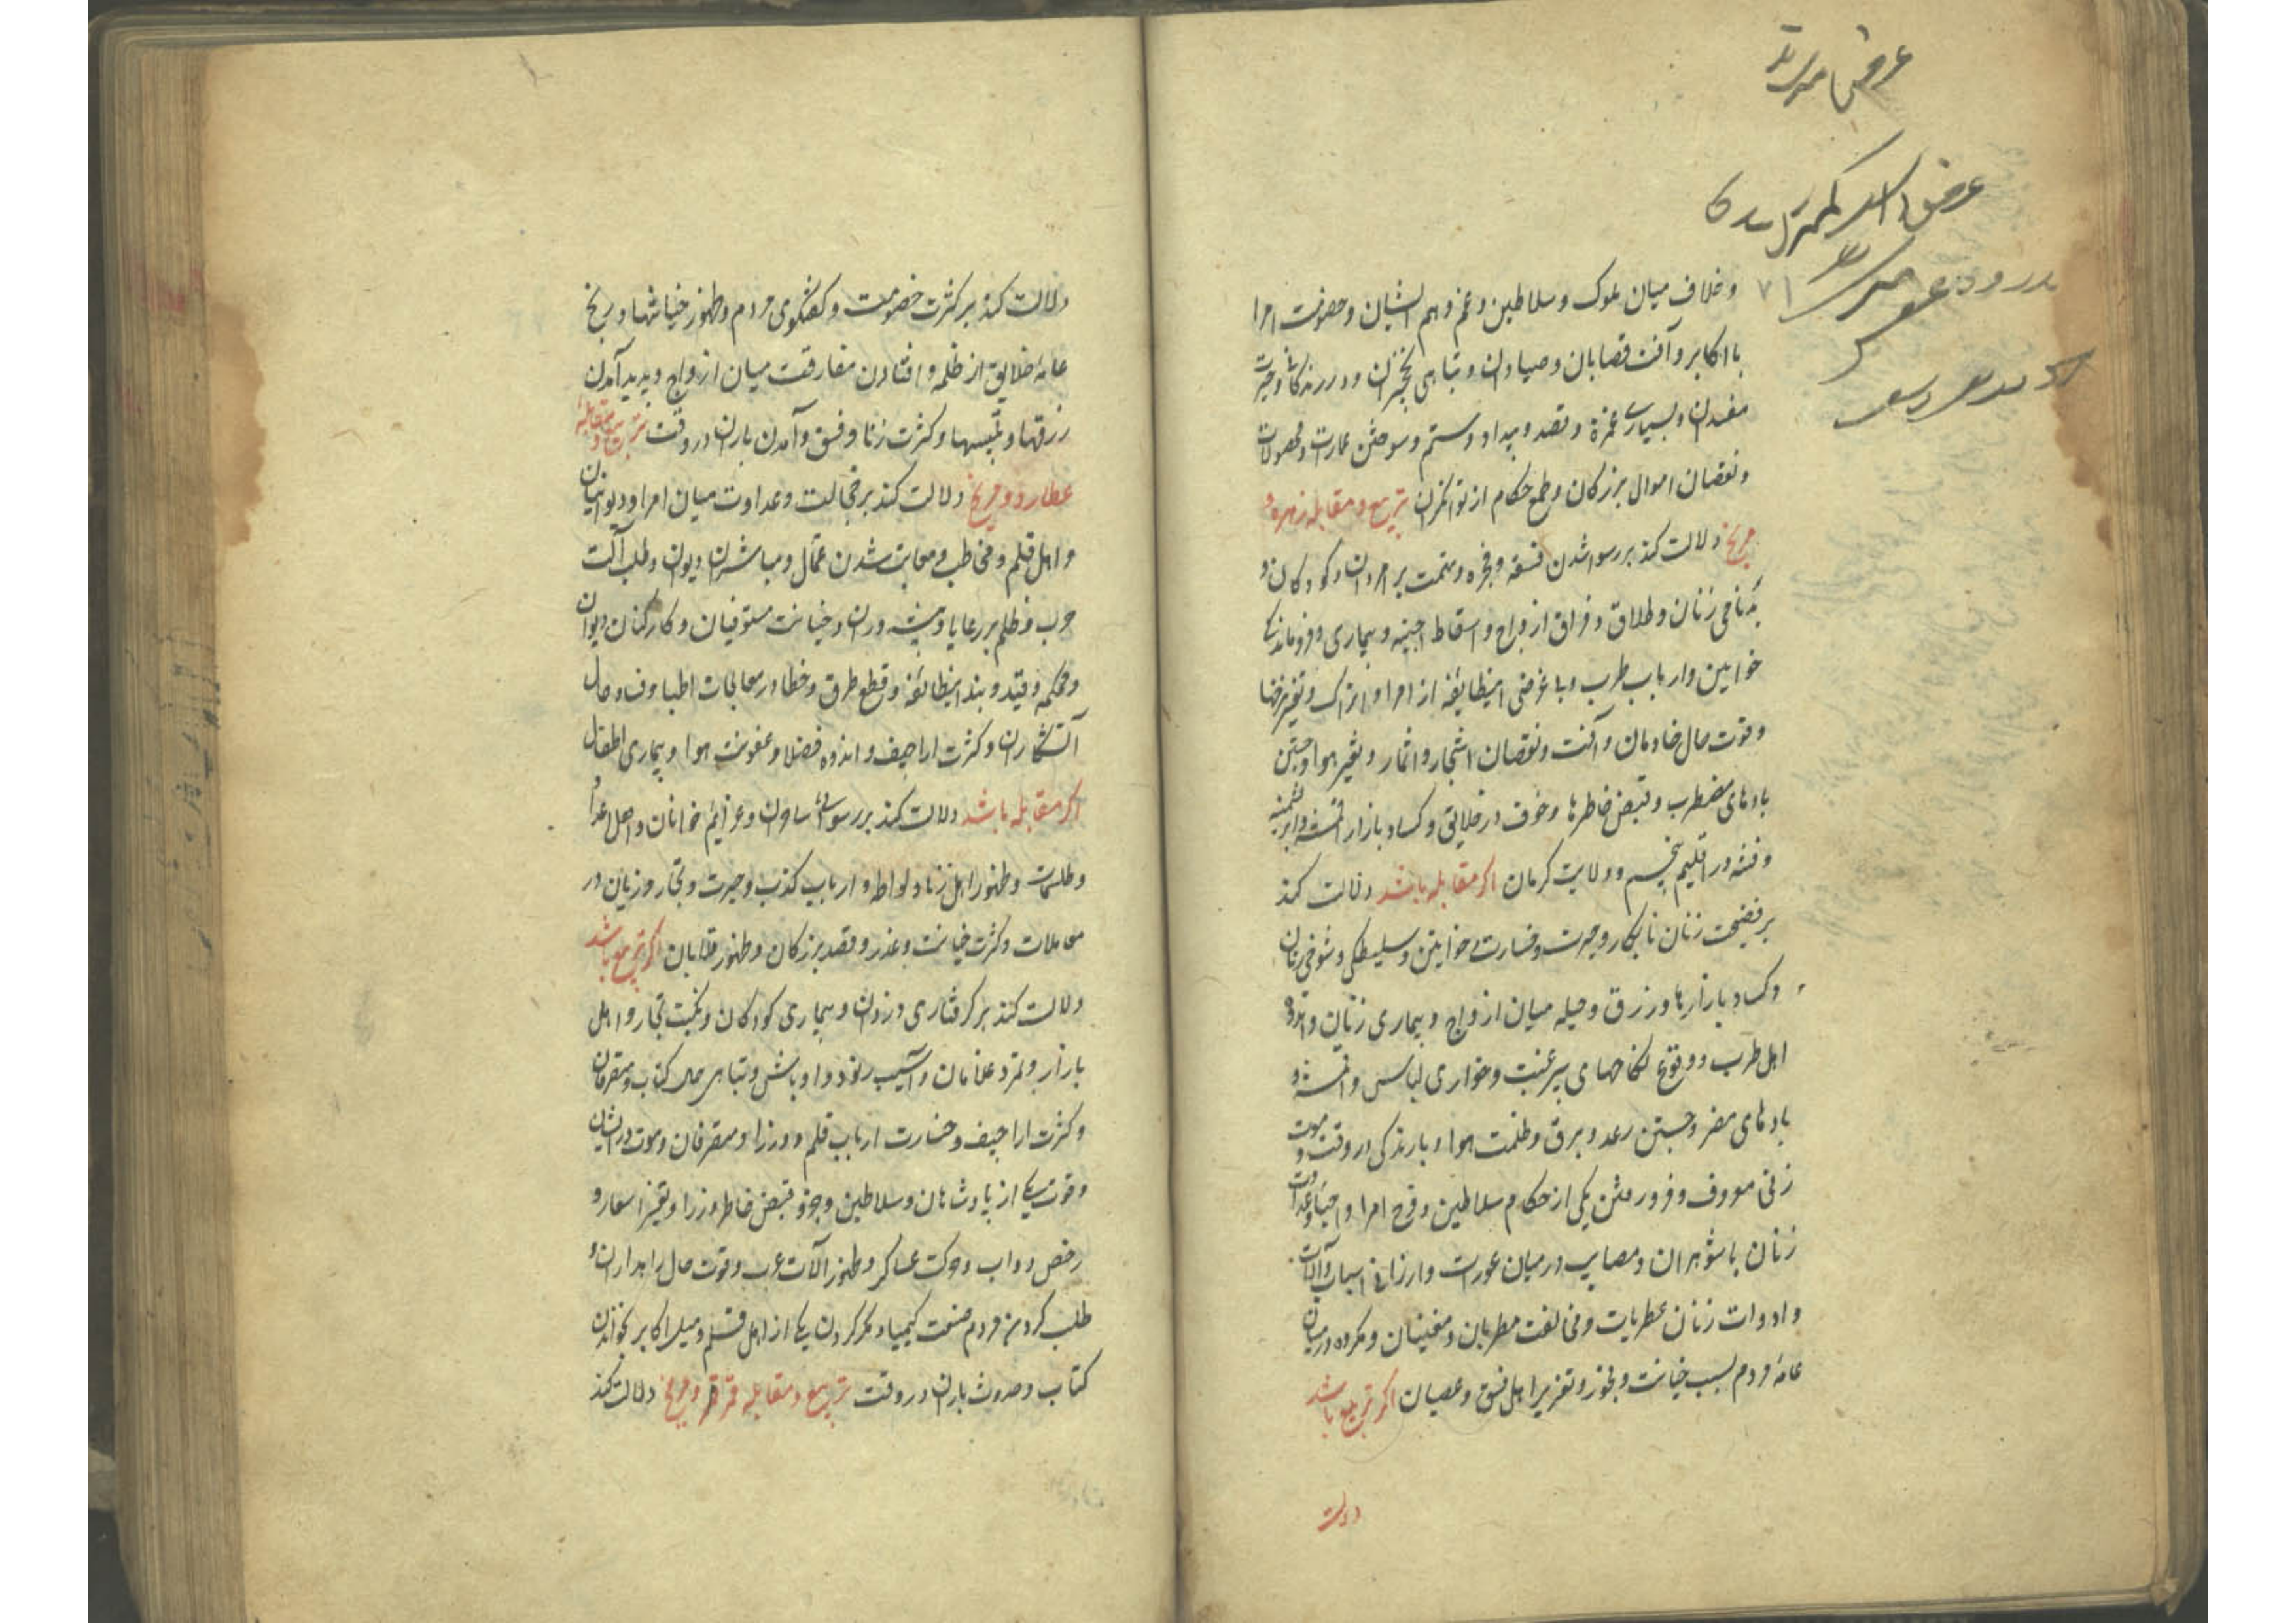 و خلاف میان ملوک و سلاطین و غم و هم ایشان و خصومت امرا
با اکابر و آفت قصابان و صیادان و تباهی نخجیران و درندگان و حیرت
مفسدان و بسیاری غمزه و قصد و بیداد و ستم و سوختن عمارت و محصولات
و نقصان اموال بزرگان و طمع حکام از توانگران تربیع و مقابله زهره و
مریخ دلالت کند بر رسوا شدن فسقه و فجره و تهمت بر امردان و کودکان و
بدنامی زنان و طلاق و فراق ازواج و اسقاط اجنه و بیماری و فروماندگی
خواتین و ارباب طرب و بی غرضی اینطایفه از امرا و اتراک و تغیر مزاجها
و قوت حال خادمان و آفت و نقصان اشجار و اثمار و تغیر هوا و جستن
بادهای مضطرب و قبض خاطرها و خوف در خلایق و کساد بازار اقمشه و ابریشمینه
و فتنه در اقلیم پنجم و ولایت کرمان اگر مقابله باشد دلالت کند
بر فضیحت زنان نابکار و حیرت و خسارت خواتین و سلیطگی و شوخی زنان
و کساد بازارها و زرق و حیله میان ازواج و بیماری زنان و اندوه
اهل طرب و وقوع نکاحهای بیرغبت و خواری لباس و اقمشه و
بادهای مضر و جستن رعد و برق و ظلمت هوا و بارندگی در وقت و موت
زنی معروف و فرو رفتن یکی از حکام سلاطین و فرح امرا و عداوت
زنان با شوهران و مصایب در میان عورات و ارزانی اسباب و آلات
و ادوات زنان عطریات و مخالفت مطربان و مغنیان و مکروه در میان
عامه مردم بسبب خیانت و فجور و تعزیر اهل فسق و عصیان اگر تربیع باشد
دلالت
دلالت کند بر کثرت خصومت و گفتگوی مردم و ظهور خیانتها و رنج
عامه خلایق از ظلمه و افتادن مفارقت میان ازواج و پدید آمدن
زرقها و تلبیسها و کثرت زنا و فسق و آمدن باران در وقت تربیع و مقابله
عطارد و مریخ دلالت کند بر خجالت و عداوت میان امرا و دیوانیان
و اهل قلم و مخاطب و معاتب شدن عمال و مباشران دیوان و طلب آلت
حرب و ظلم بر رعایا و پیشه وران و خیانت مستوفیان و کارکنان دیوان
و محکمه و قید و بند اینطایفه و قطع طرق و خطا در معالجات اطبا و فساد حال
آتشکاران و کثرت اراجیف و اندوه فضلا و عفونت هوا و بیماری اطفال
اگر مقابله باشد دلالت کند بر رسوائی ساحران و عزایم خوانان و اهل اعداد
و طلسمات و ظهور اهل زنا و لواطه و ارباب کذب و حیرت و تجار و زیان در
معاملات و کثرت خیانت و غدر و قصد بزرگان و ظهور قلابان اگر تربیع باشد
دلالت کند بر گرفتاری دزدان و بیماری کودکان و نکبت تجار و اهل
بازار و تمرد غلامان و آسیب رنود و اوباش و تباهی حال کتاب و متصرفان
و کثرت اراجیف و خسارت ارباب قلم و وزرا و متصرفان و موت در ایشان
و فوت یکی از پادشاهان و سلاطین و قبض خاطر وزرا و تغیر اسعار و
رخص دواب و حرکت عساکر و ظهور آلات حرب و قوت حال راهداران و
طلب کردن مردم صنعت کیمیا و مکر کردن یکی از اهل قلم و میل اکابر بخواندن
کتاب و حدوث باران در وقت تربیع و مقابله قمر و مریخ دلالت کند